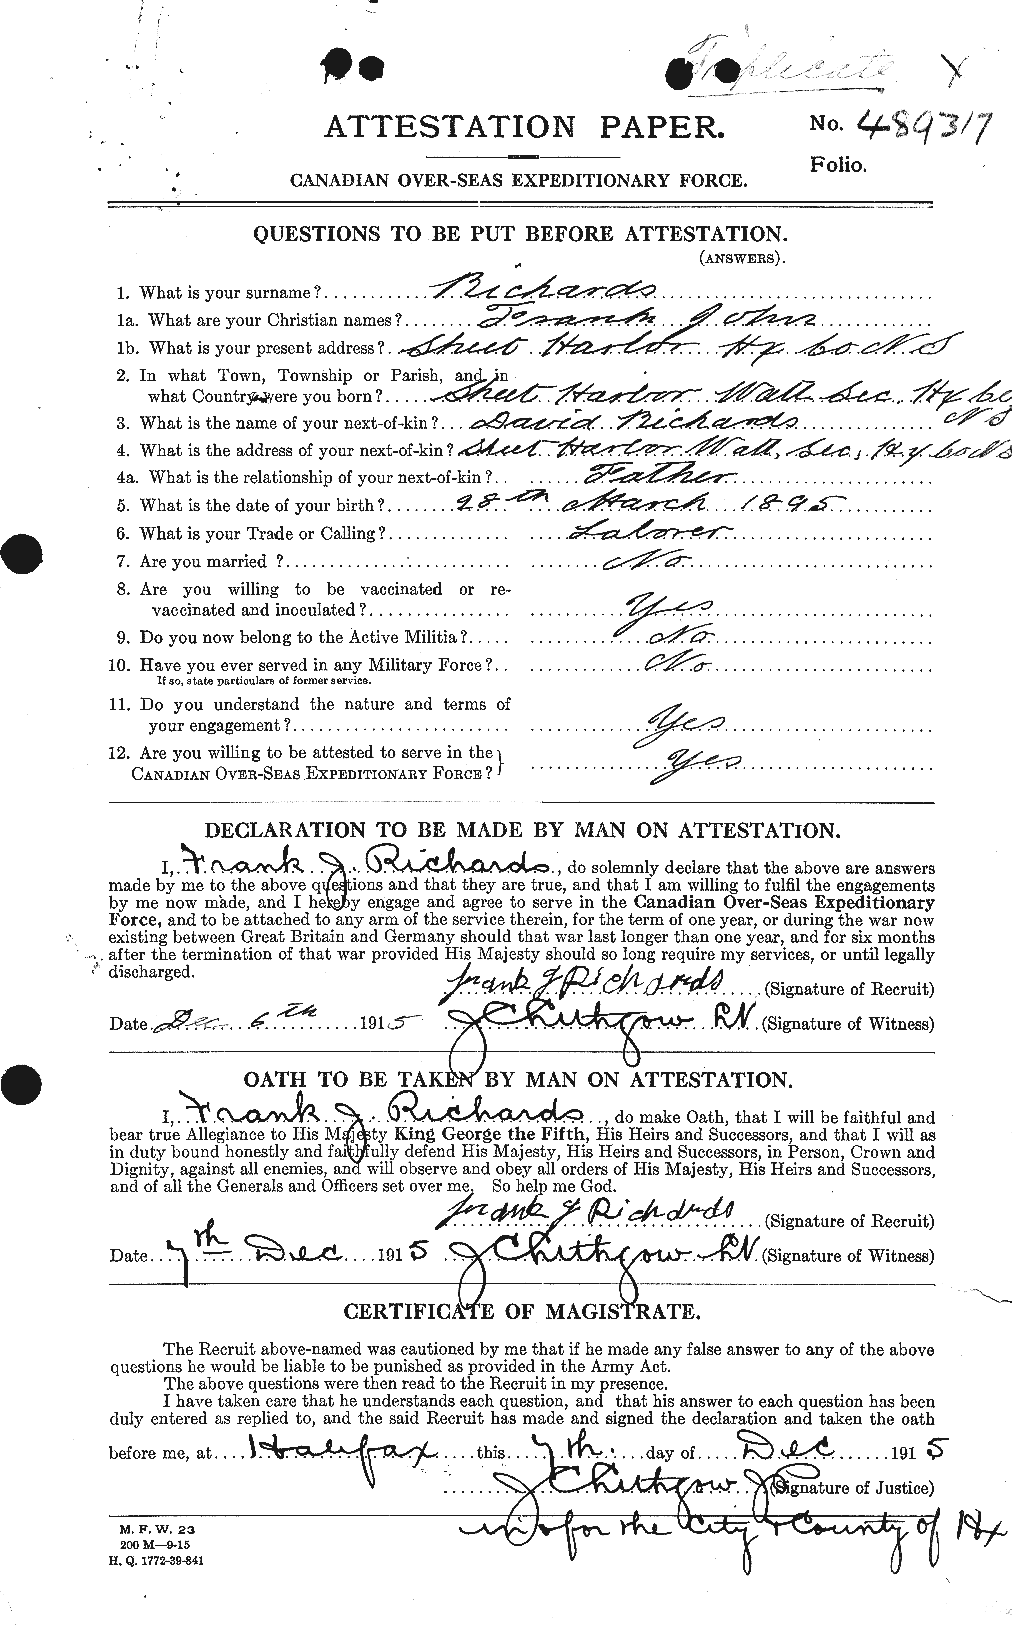 Triplicate
ATTESTATION PAPER.
No. 489317
Folio.
CANADIAN OVER-SEAS EXPEDITIONARY FORCE.
QUESTIONS TO BE PUT BEFORE ATTESTATION.
(ANSWERS).
1. What is your surname? Richards
1a. What are your Christian names? Frank John
1b. What is your present address? Sheet Harbor Hx Co N S
2. In what Town, Township or Parish, and in
what Country were you born? Sheet Harbor Watt Sec, Hx Co
N S
3. What is the name of your next-of-kin? David Richards
4. What is the address of your next-of-kin? Sheet Harbor Watt, Sec, Hx Co N S
4a. What is the relationship of your next-of-kin? Father
5. What is the date of your birth? 28th March 1895
6. What is your Trade or Calling? Laborer
7. Are you married? No
8. Are you willing to be vaccinated or re-
vaccinated and inoculated? Yes
9. Do you now belong to the Active Militia? No
10. Have you ever served in any Military Force? No
If so, state particulars of former service.
11. Do you understand the nature and terms of
your engagement? Yes
12. Are you willing to be attested to serve in the
CANADIAN OVER-SEAS EXPEDITIONARY FORCE? Yes
DECLARATION TO BE MADE BY MAN ON ATTESTATION.
I, Frank J. Richards, do solemnly declare that the above are answers
made by me to the above questions and that they are true, and that I am willing to fulfil the engagements
by me now made, and I hereby engage and agree to serve in the Canadian Over-Seas Expeditionary
Force, and to be attached to any arm of the service therein, for the term of one year, or during the war now
existing between Great Britain and Germany should that war last longer than one year, and for six months
after the termination of that war provided His Majesty should so long require my services, or until legally
discharged.
Frank J Richards (Signature of Recruit)
Date Dec 6th 1915 (Signature of Witness)
OATH TO BE TAKEN BY MAN ON ATTESTATION.
I, Frank J. Richards, do make Oath, that I will be faithful and
bear true Allegiance to His Majesty King George the Fifth, His Heirs and Successors, and that I will as
in duty bound honestly and faithfully defend His Majesty, His Heirs and Successors, in Person, Crown and
Dignity, against all enemies, and will observe and obey all orders of His Majesty, His Heirs and Successors,
and of all the Generals and Officers set over me. So help me God.
Frank J Richards (Signature of Recruit)
Date 7th Dec 1915 (Signature of Witness)
CERTIFICATE OF MAGISTRATE.
The Recruit above-named was cautioned by me that if he made any false answer to any of the above
questions he would be liable to be punished as provided in the Army Act.
The above questions were then read to the Recruit in my presence.
I have taken care that he understands each question, and that his answer to each question has been
duly entered as replied to, and the said Recruit has made and signed the declaration and taken the oath
before me, at Halifax this 7th day of Dec 1915
(Signature of Justice)
for the City & County of Hx
M. F. W. 23
200 M—9-15
H. Q. 1772-39-841